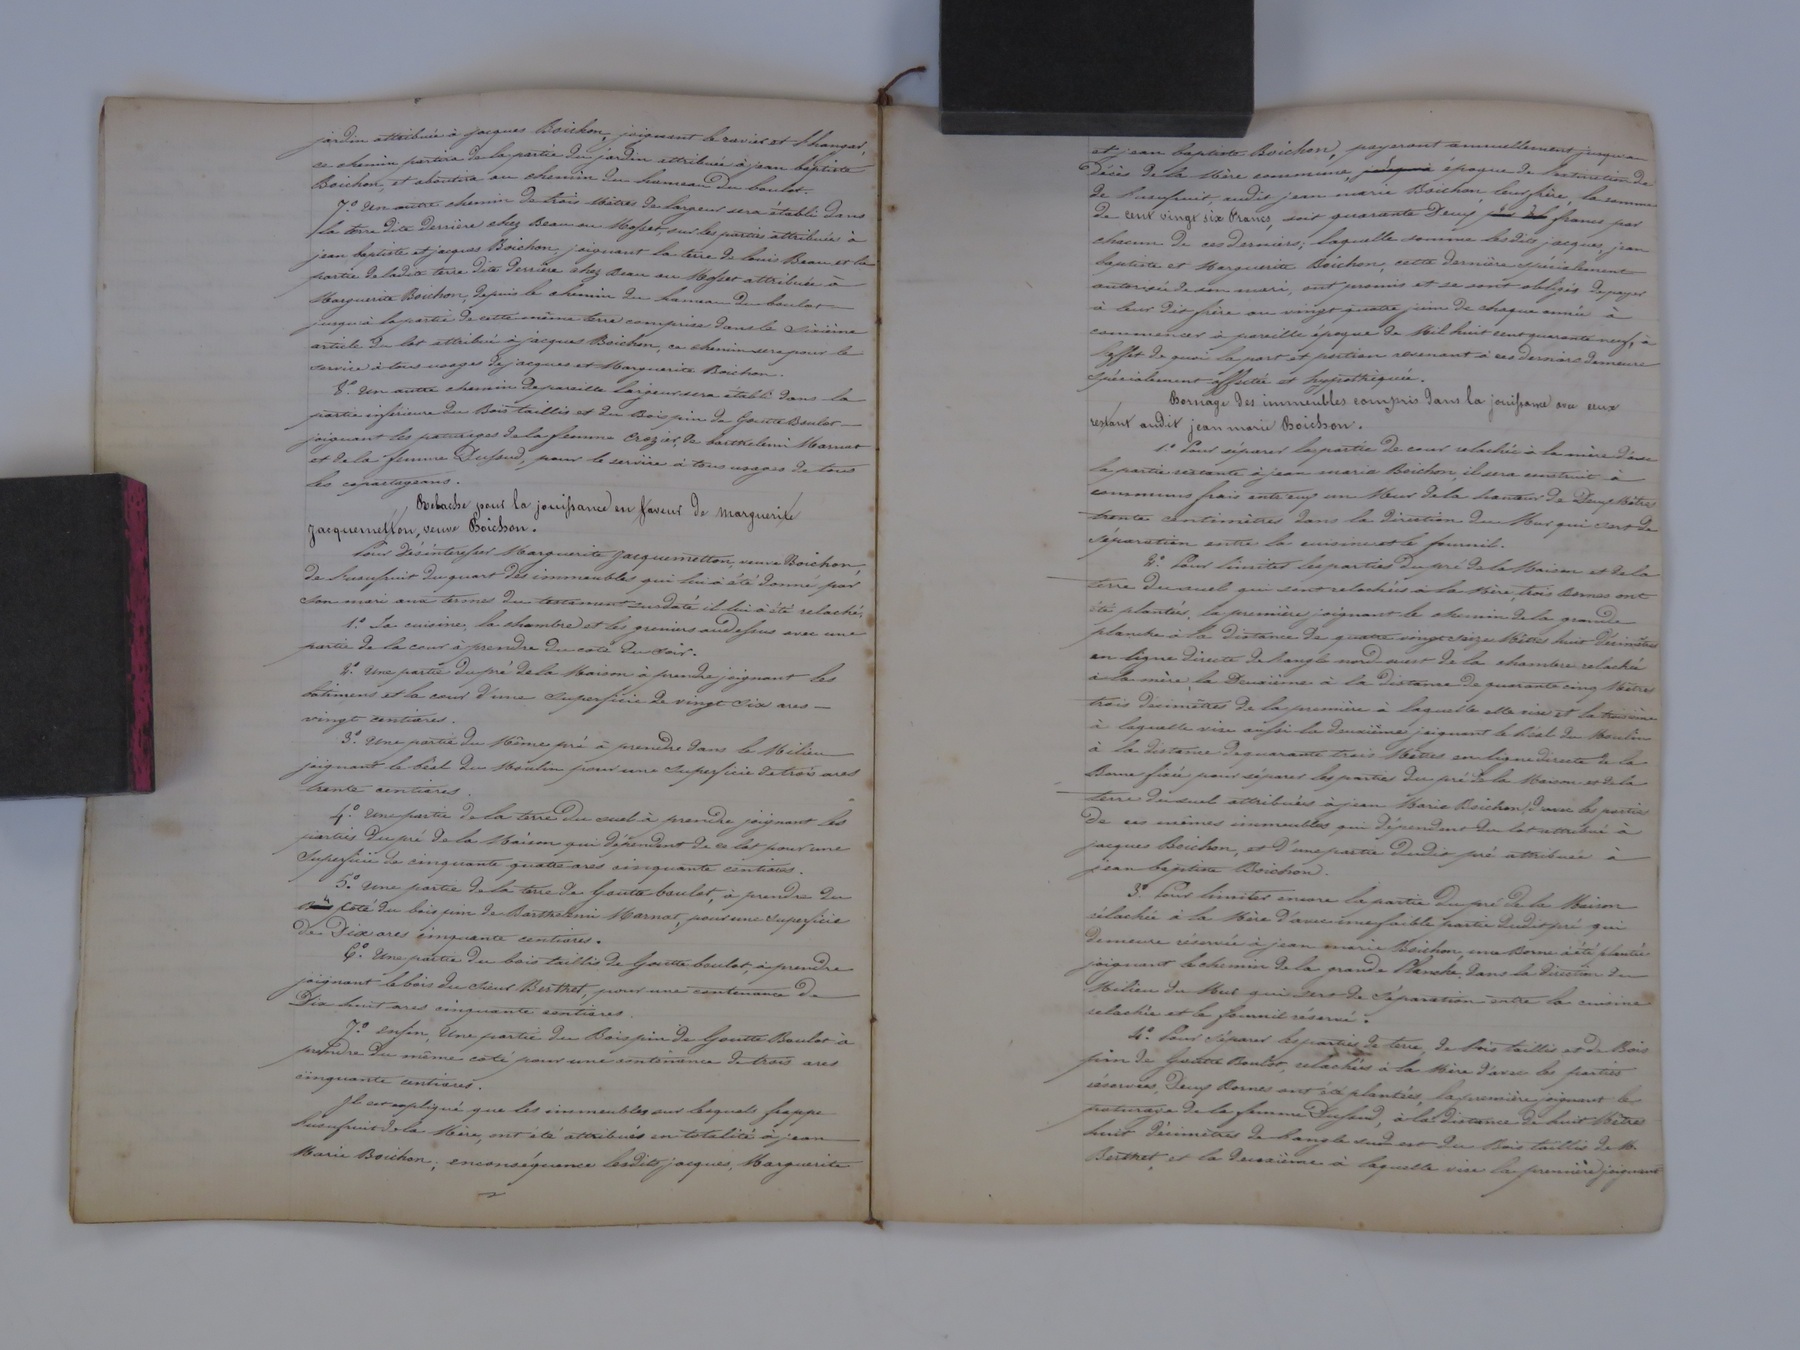 jardin attribuée à jacques Boichon, joignant le ravier et l'hangar,
ce chemin partira de la partie du jardin attribuée à jean baptiste
Boichon, et aboutira au chemin du hameau du boulot.
7.° Un autre chemin de trois Mètres de largeur sera établi dans
la terre dite Derrière chez Beau ou Mosset, sur les parties attribuées à
jean baptiste et jacques Boichon, joignant la terre de louis Beau et la
partie de ladite terre dite derrière chez Beau ou Mosset attribuée à
Marguerite Boichon, depuis le chemin du hameau du boulot
jusqu'à la partie de cette même terre comprise dans le sixième
article du lot attribué à jacques Boichon, ce chemin sera pour le
service à tous usages de jacques et Marguerite Boichon.
8.° Un autre chemin de pareille largeur sera établi dans la
partie inférieure du Bois taillis et du Bois pin de Goutte Boulot
joignant les paturages de la femme Crozier, de barthelemi Marnat
et de la femme Dufaud, pour le service à tous usages de tous
les copartageans.
Relache pour la jouissance en faveur de marguerite
Jacquemetton, veuve Boichon.
Pour désintéresser Marguerite jacquemetton, veuve Boichon,
de l'usufruit du quart des immeubles qui lui a été donné par
son mari aux termes du testament susdaté il lui a été relaché,
1.° La cuisine, la chambre et les greniers audessus avec une
partie de la cour à prendre du coté du soir.
2.° Une partie du pré de la Maison à prendre joignant les
batimens et la cour d'une superficie de vingt six ares
vingt centiares.
3.° Une partie du Même pré à prendre dans le Milieu
joignant le béal du Moulin pour une superficie de trois ares
trente centiares.
4.° Une partie de la terre du suel à prendre joignant les
parties du pré de la Maison qui dépendent de ce lot pour une
superficie de cinquante quatre ares cinquante centiares.
5.° Une partie de la terre de Goutte boulot, à prendre du
coté du bois pin de Barthelemi Marnat, pour une superficie
de Dix ares cinquante centiares.
6.° Une partie du bois taillis de Goutte boulot, à prendre
joignant le bois du sieur Berthet, pour une contenance de
Dix huit ares cinquante centiares.
7.° enfin, Une partie du Bois pin de Goutte Boulot à
prendre du même coté pour une contenance de trois ares
cinquante centiares.
Il est expliqué que les immeubles sur lesquels frappe
l'usufruit de la Mère, ont été attribués en totalité à jean
Marie Boichon; en conséquence lesdits jacques, Marguerite
et jean baptiste Boichon, payeront annuellement jusqu'au
Décès de la Mère commune, époque de l'extinction de
de l'usufruit, audit jean marie Boichon leur frère, la somme
de cent vingt six francs, soit quarante Deux francs par
chacun de ces derniers; laquelle somme lesdits jacques, jean
baptiste et Marguerite Boichon, cette dernière spécialement
autorisée de son mari, ont promis et se sont obligés de payer
à leur dit frère au vingt quatre juin de chaque année à
commencer à pareille époque de Mil huit cent quarante neuf, à
l'effet de quoi la part et portion revenant à ces derniers demeure
spécialement affectée et hypothéquée.
Bornage des immeubles compris dans la jouissance avec ceux
restant audit jean marie Boichon.
1.° Pour séparer la partie de cour relachée à la mère d'avec
la partie restante à jean marie Boichon, il sera construit à
communs frais entr'eux un Mur de la hauteur de Deux Mètres
trente centimètres dans la direction du Mur qui sert de
séparation entre la cuisine et le fournil.
2.° Pour limiter les parties du pré de la Maison et de la
terre du suel qui sont relachées à la Mère, trois Bornes ont
été plantées, la première joignant le chemin de la grande
planche à la distance de quatre vingt seize Mètres huit Décimètres
en ligne directe de l'angle nord ouest de la chambre relachée
à la mère, la Deuxième à la distance de quarante cinq Mètres
trois décimètres de la première à laquelle elle vise et la troisième
à laquelle vise aussi la deuxième joignant le béal du Moulin
à la distance de quarante trois Mètres en ligne directe de la
Borne fixée pour séparer les parties du pré de la Maison et de la
terre du suel attribuées à jean Marie Boichon, d'avec les parties
de ces mêmes immeubles qui dépendent du lot attribué à
jacques Boichon, et d'une partie dudit pré attribuée à
jean baptiste Boichon.
3.° Pour limiter encore la partie du pré de la Maison
relachée à la Mère d'avec une faible partie dudit pré qui
demeure réservée à jean marie Boichon, une Borne a été plantée
joignant le chemin de la grande Planche, dans la direction du
Milieu du Mur qui sert de séparation entre la cuisine
relachée et le fournil réservé.
4.° Pour séparer les parties de terre, de bois taillis et de Bois
pin de Goutte Boulot, relachées à la Mère d'avec les parties
réservées, Deux Bornes ont été plantées, la première joignant le
paturage de la femme Dufaud, à la distance de huit Mètres
huit décimètres de l'angle sud est du Bois taillis de M.
Berthet, et la deuxième à laquelle vise la première joignant